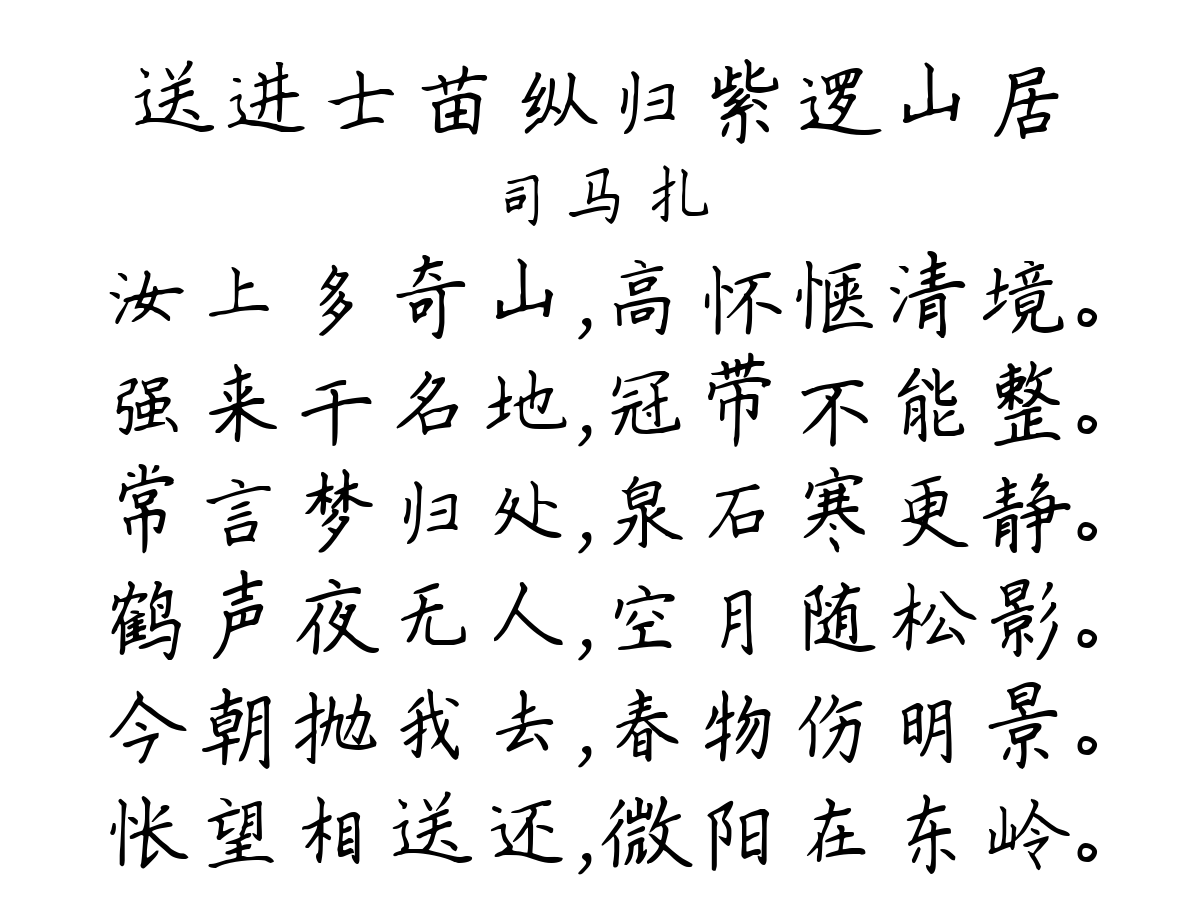 送进士苗纵归紫逻山居
司马扎
汝上多奇山,高怀惬清境。
强来干名地,冠带不能整。
常言梦归处,泉石寒更静。
鹤声夜无人,空月随松影。
今朝抛我去,春物伤明景。
怅望相送还,微阳在东岭。